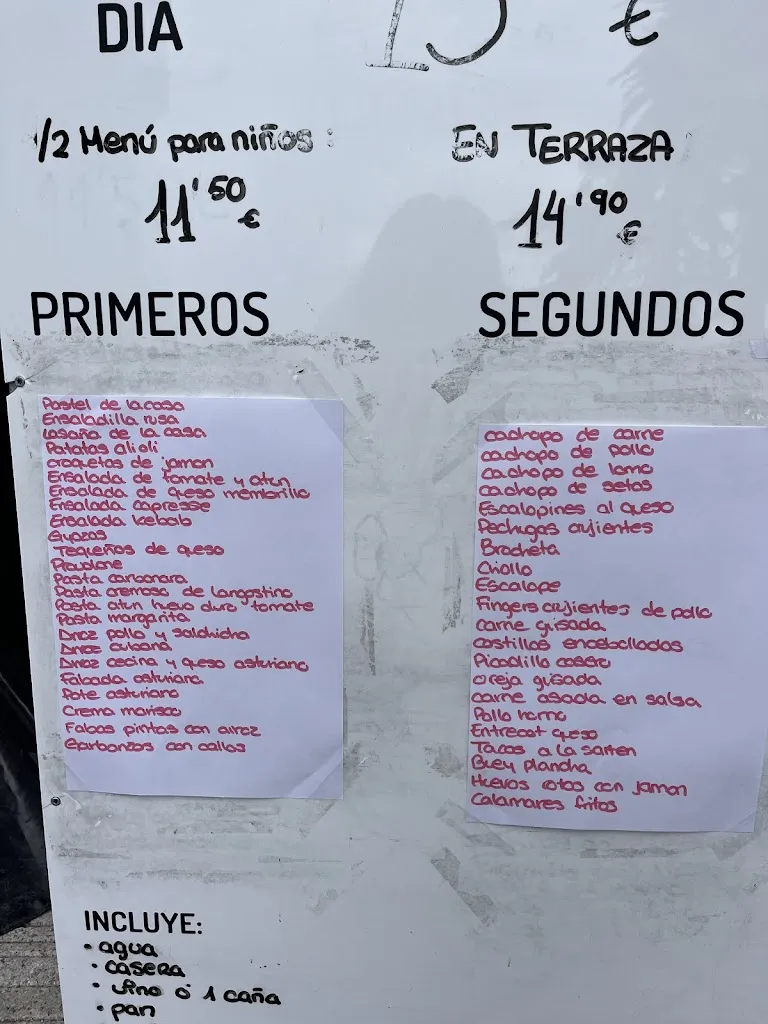 DIA
€
1/2 Menú para niños:
11'50 €
EN TERRAZA
14'90 €
PRIMEROS
Pastel de la casa
Ensaladilla rusa
Lasaña de la casa
Patatas alioli
croquetas de jamon
Ensalada de tomate y atun
Ensalada de queso membrillo
Ensalada capresse
Ensalada kebab
Gyozas
Tequeños de queso
Provolone
Pasta carbonara
Pasta cremosa de langostino
Pasta atun huevo duro tomate
Pasta margarita
Arroz pollo y salchicha
Arroz cubana
Arroz cecina y queso asturiano
Fabada asturiana
Pote asturiano
Crema marisco
Fabas pintas con arroz
Garbanzos con callos
SEGUNDOS
cachopo de carne
cachopo de pollo
cachopo de lomo
cachopo de setas
Escalopines al queso
Pechugas crujientes
Brocheta
Criollo
Escalope
Fingers crujientes de pollo
carne guisada
costillas encebolladas
Picadillo casero
oreja guisada
carne asada en salsa
Pollo horno
Entrecot queso
Tacos a la sarten
Buey plancha
Huevos rotos con jamon
Calamares fritos
INCLUYE:
• agua
• casera
• vino ó 1 caña
• pan